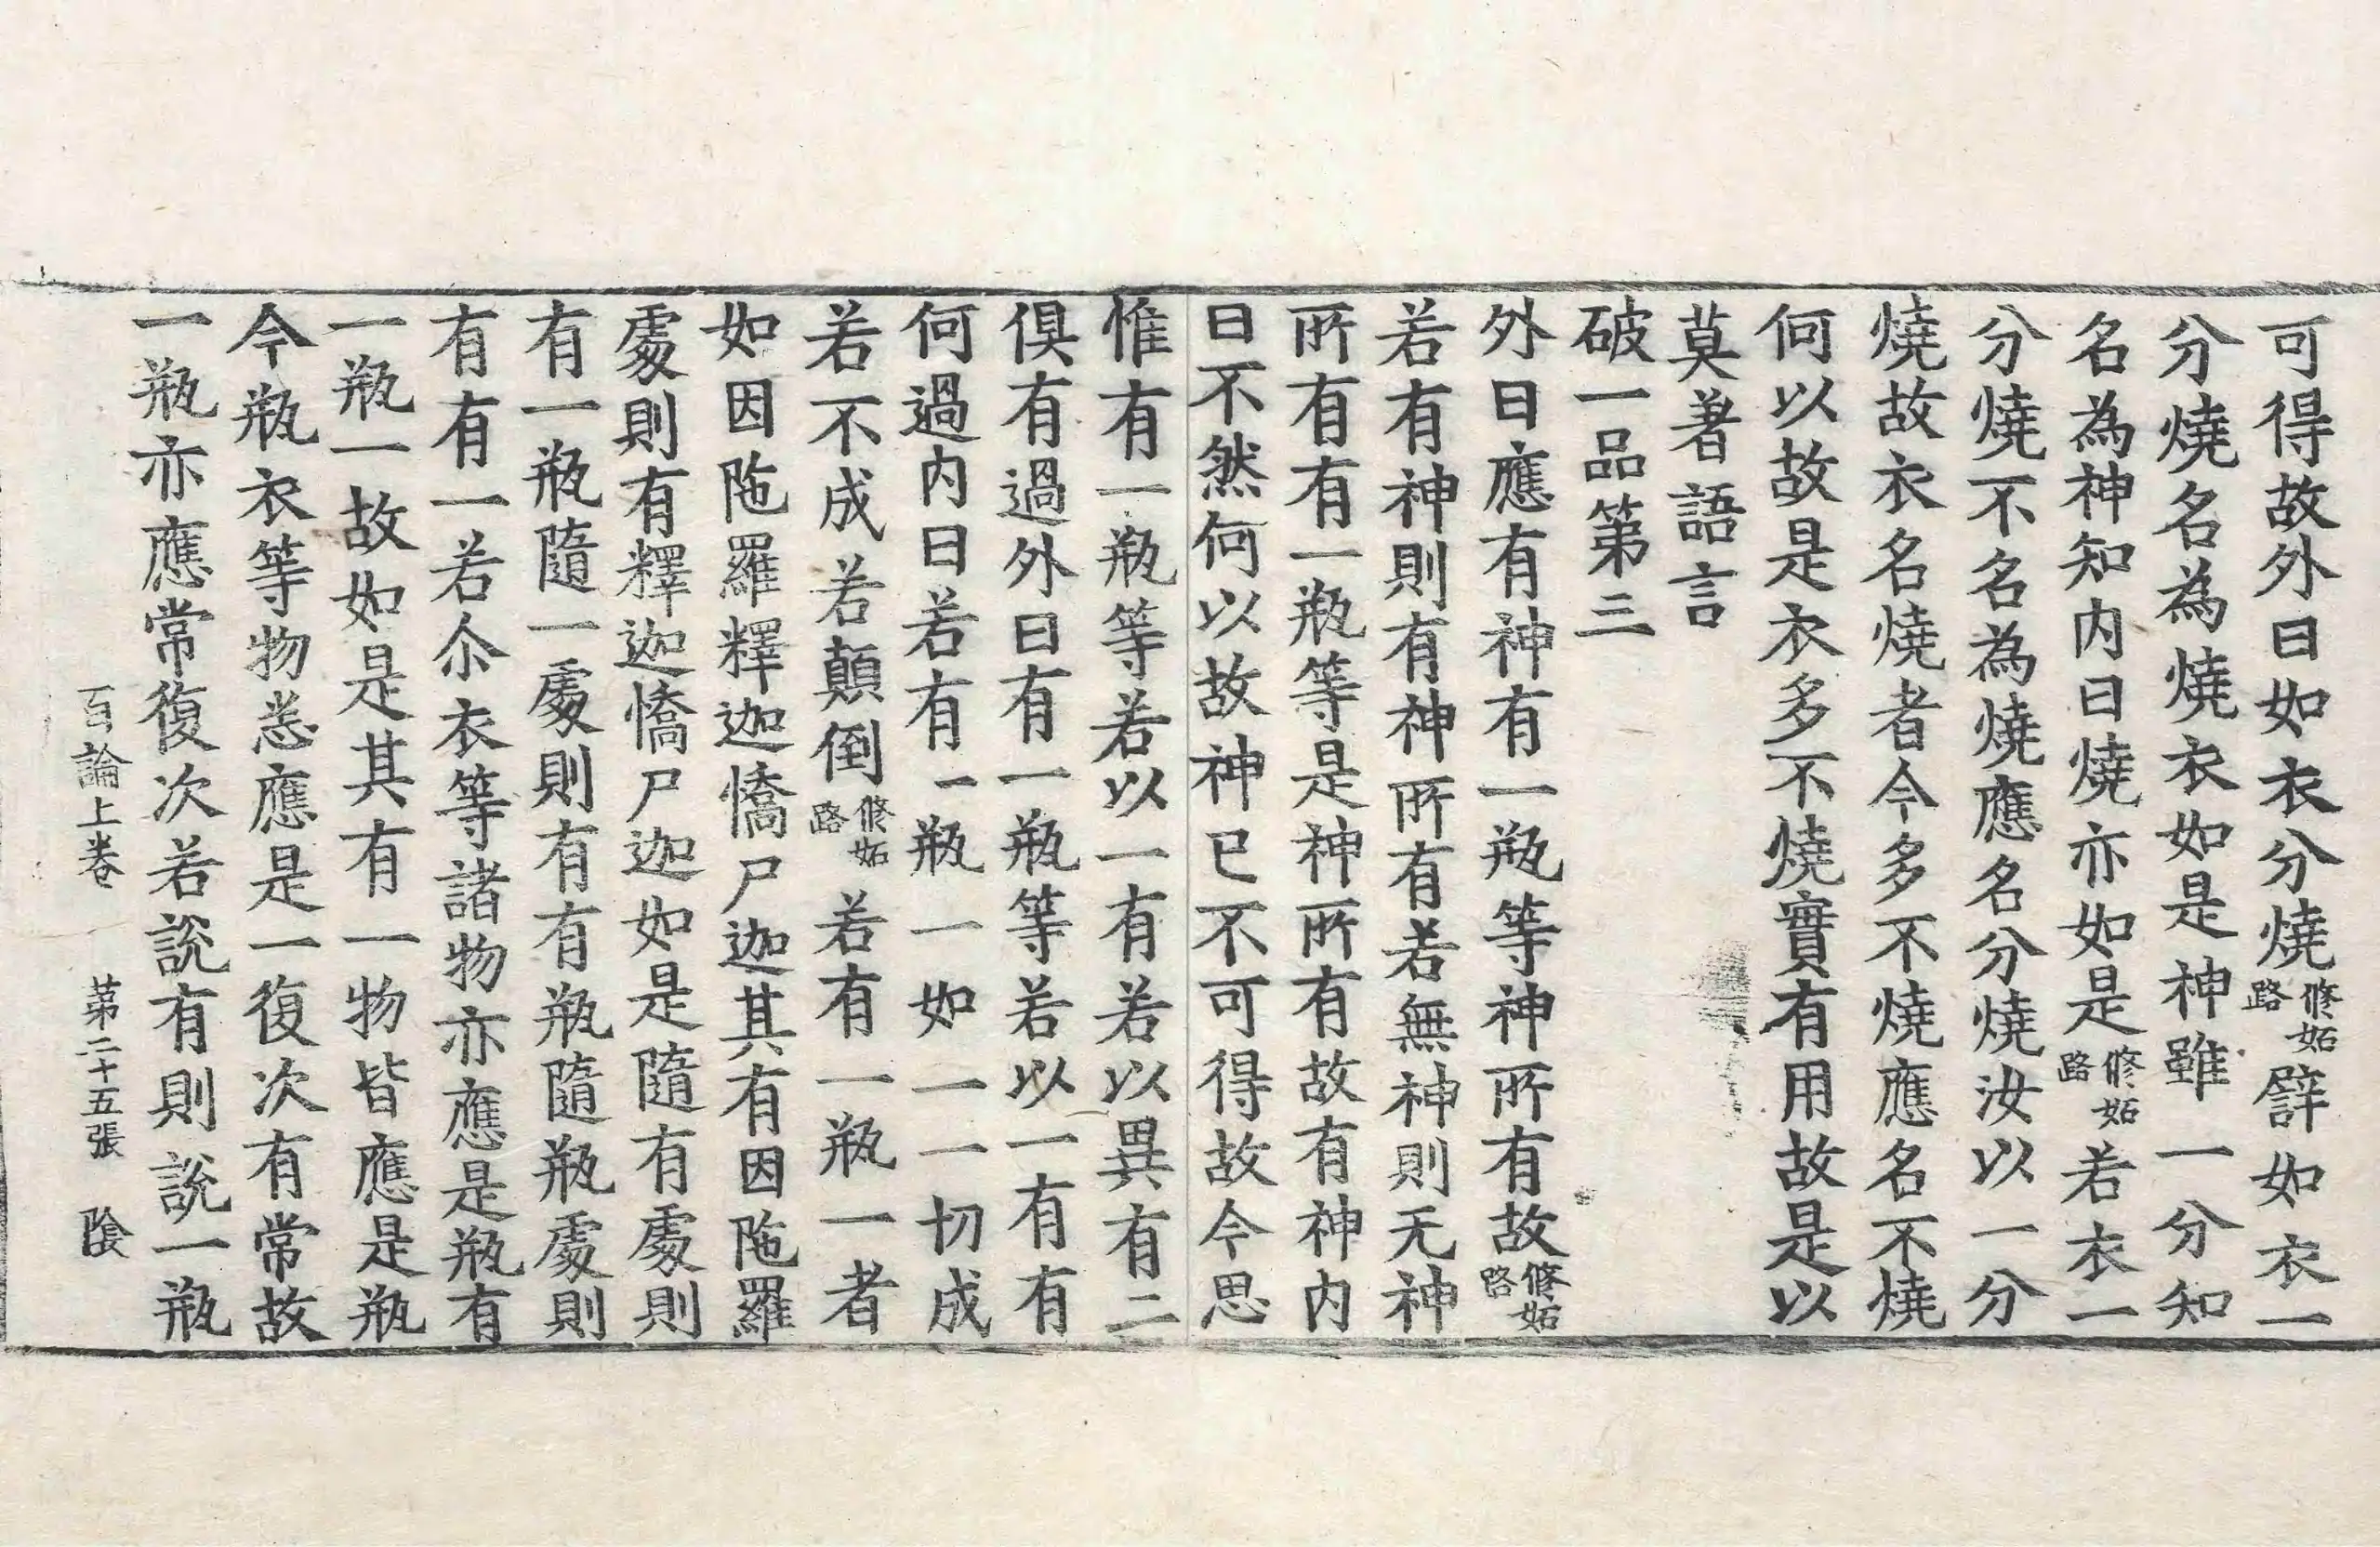 可得故外曰如衣分燒修妬路譬如衣一
分燒名為燒衣如是神雖一分知
名為神知内曰燒亦如是修妬路若衣一
分燒不名為燒應名分燒汝以一分
燒故衣名燒者今多不燒應名不燒
何以故是衣多不燒實有用故是以
莫著語言
破一品第三
外曰應有神有一瓶等神所有故修妬路
若有神則有神所有若無神則无神
所有有一瓶等是神所有故有神内
曰不然何以故神已不可得故今思
惟有一瓶等若以一有若以異有二
俱有過外曰有一瓶等若以一有有
何過内曰若有一瓶一如一一切成
若不成若顛倒修妬路若有一瓶一者
如因陁羅釋迦憍尸迦其有因陁羅
處則有釋迦憍尸迦如是隨有處則
有一瓶隨一處則有有瓶隨瓶處則
有有一若尒衣等諸物亦應是瓶有
一瓶一故如是其有一物皆應是瓶
今瓶衣等物悉應是一復次有常故
一瓶亦應常復次若說有則說一瓶
百論上卷 第二十五張 陰